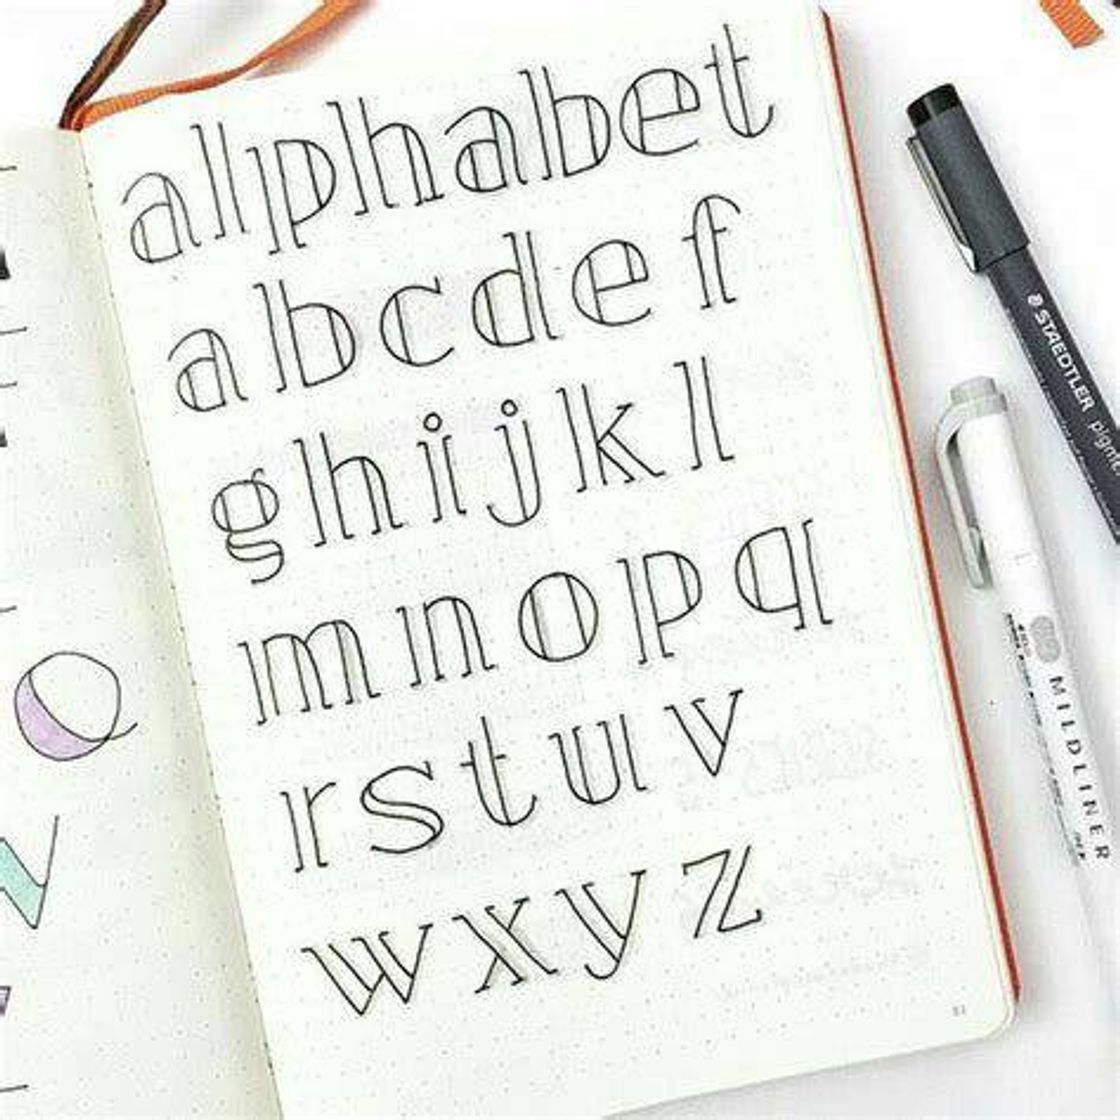 alphabet
a b c d e f
g h i j k l
m n o p q
r s t u v
w x y z
STAEDTLER
MILDLINER